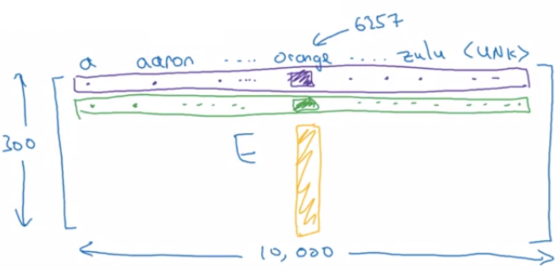 6257
a aaron ..... orange ..... zulu <UNK>
300
E
10,000